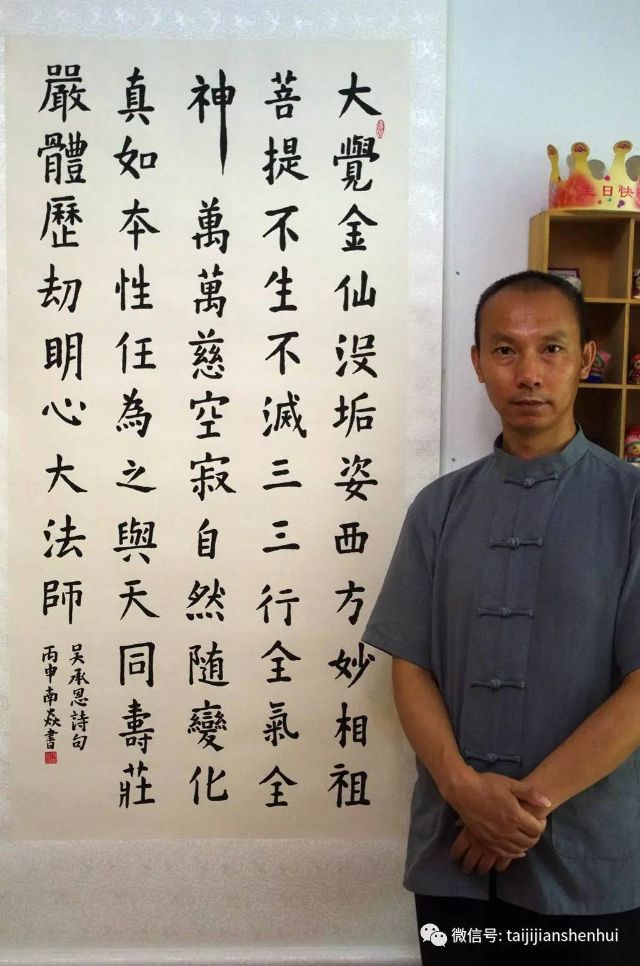 大覺金仙没垢姿西方妙相祖
菩提不生不滅三三行全氣全
神萬萬慈空寂自然随變化
真如本性任為之與天同壽莊
嚴體歷劫明心大法師
吴承恩詩句
丙申南焱書
生日快
微信号: taijijianshenhui